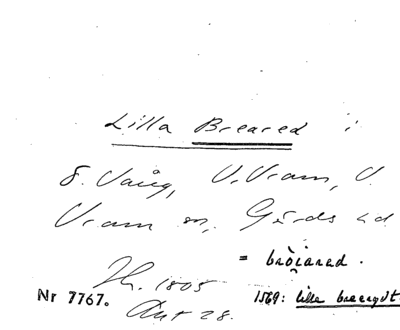 Lilla Breared i
S. Vång, V. Vram, V.
Vram sn, Gärds hd
= bröiared.
Th. 1805
Nr 7767. Ant 28. 1569: lilla